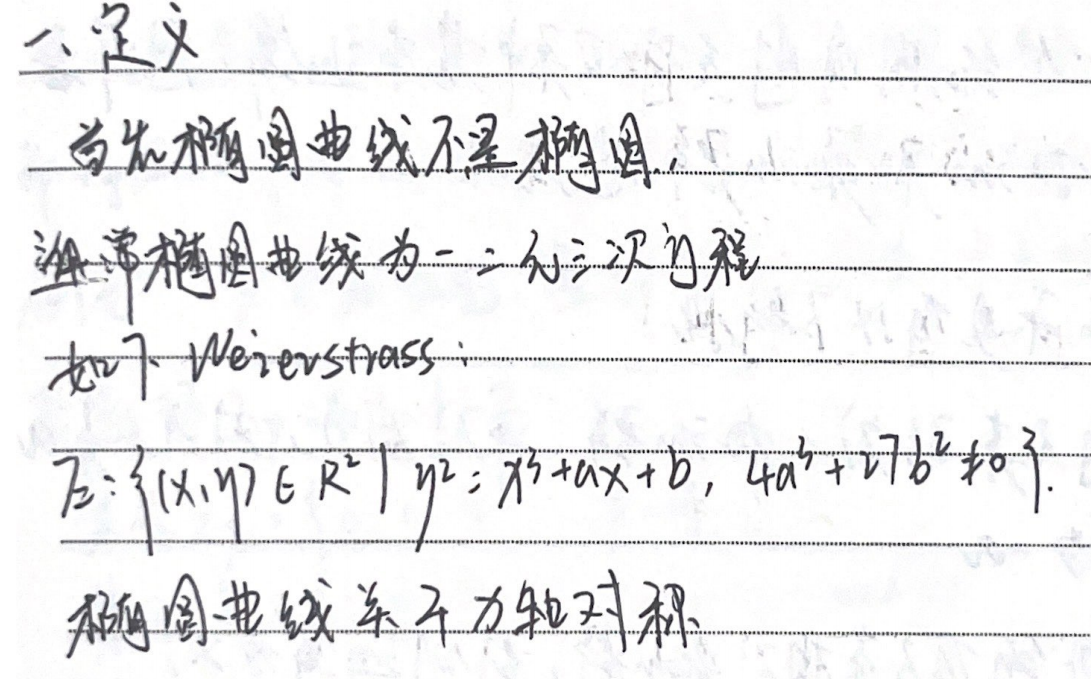 一、定义
首先椭圆曲线不是椭圆.
通常椭圆曲线为一二元三次方程
如下 Weierstrass:
E: {(x,y) ∈ R² | y² = x³+ax+b, 4a³+27b²≠0}.
椭圆曲线关于x轴对称